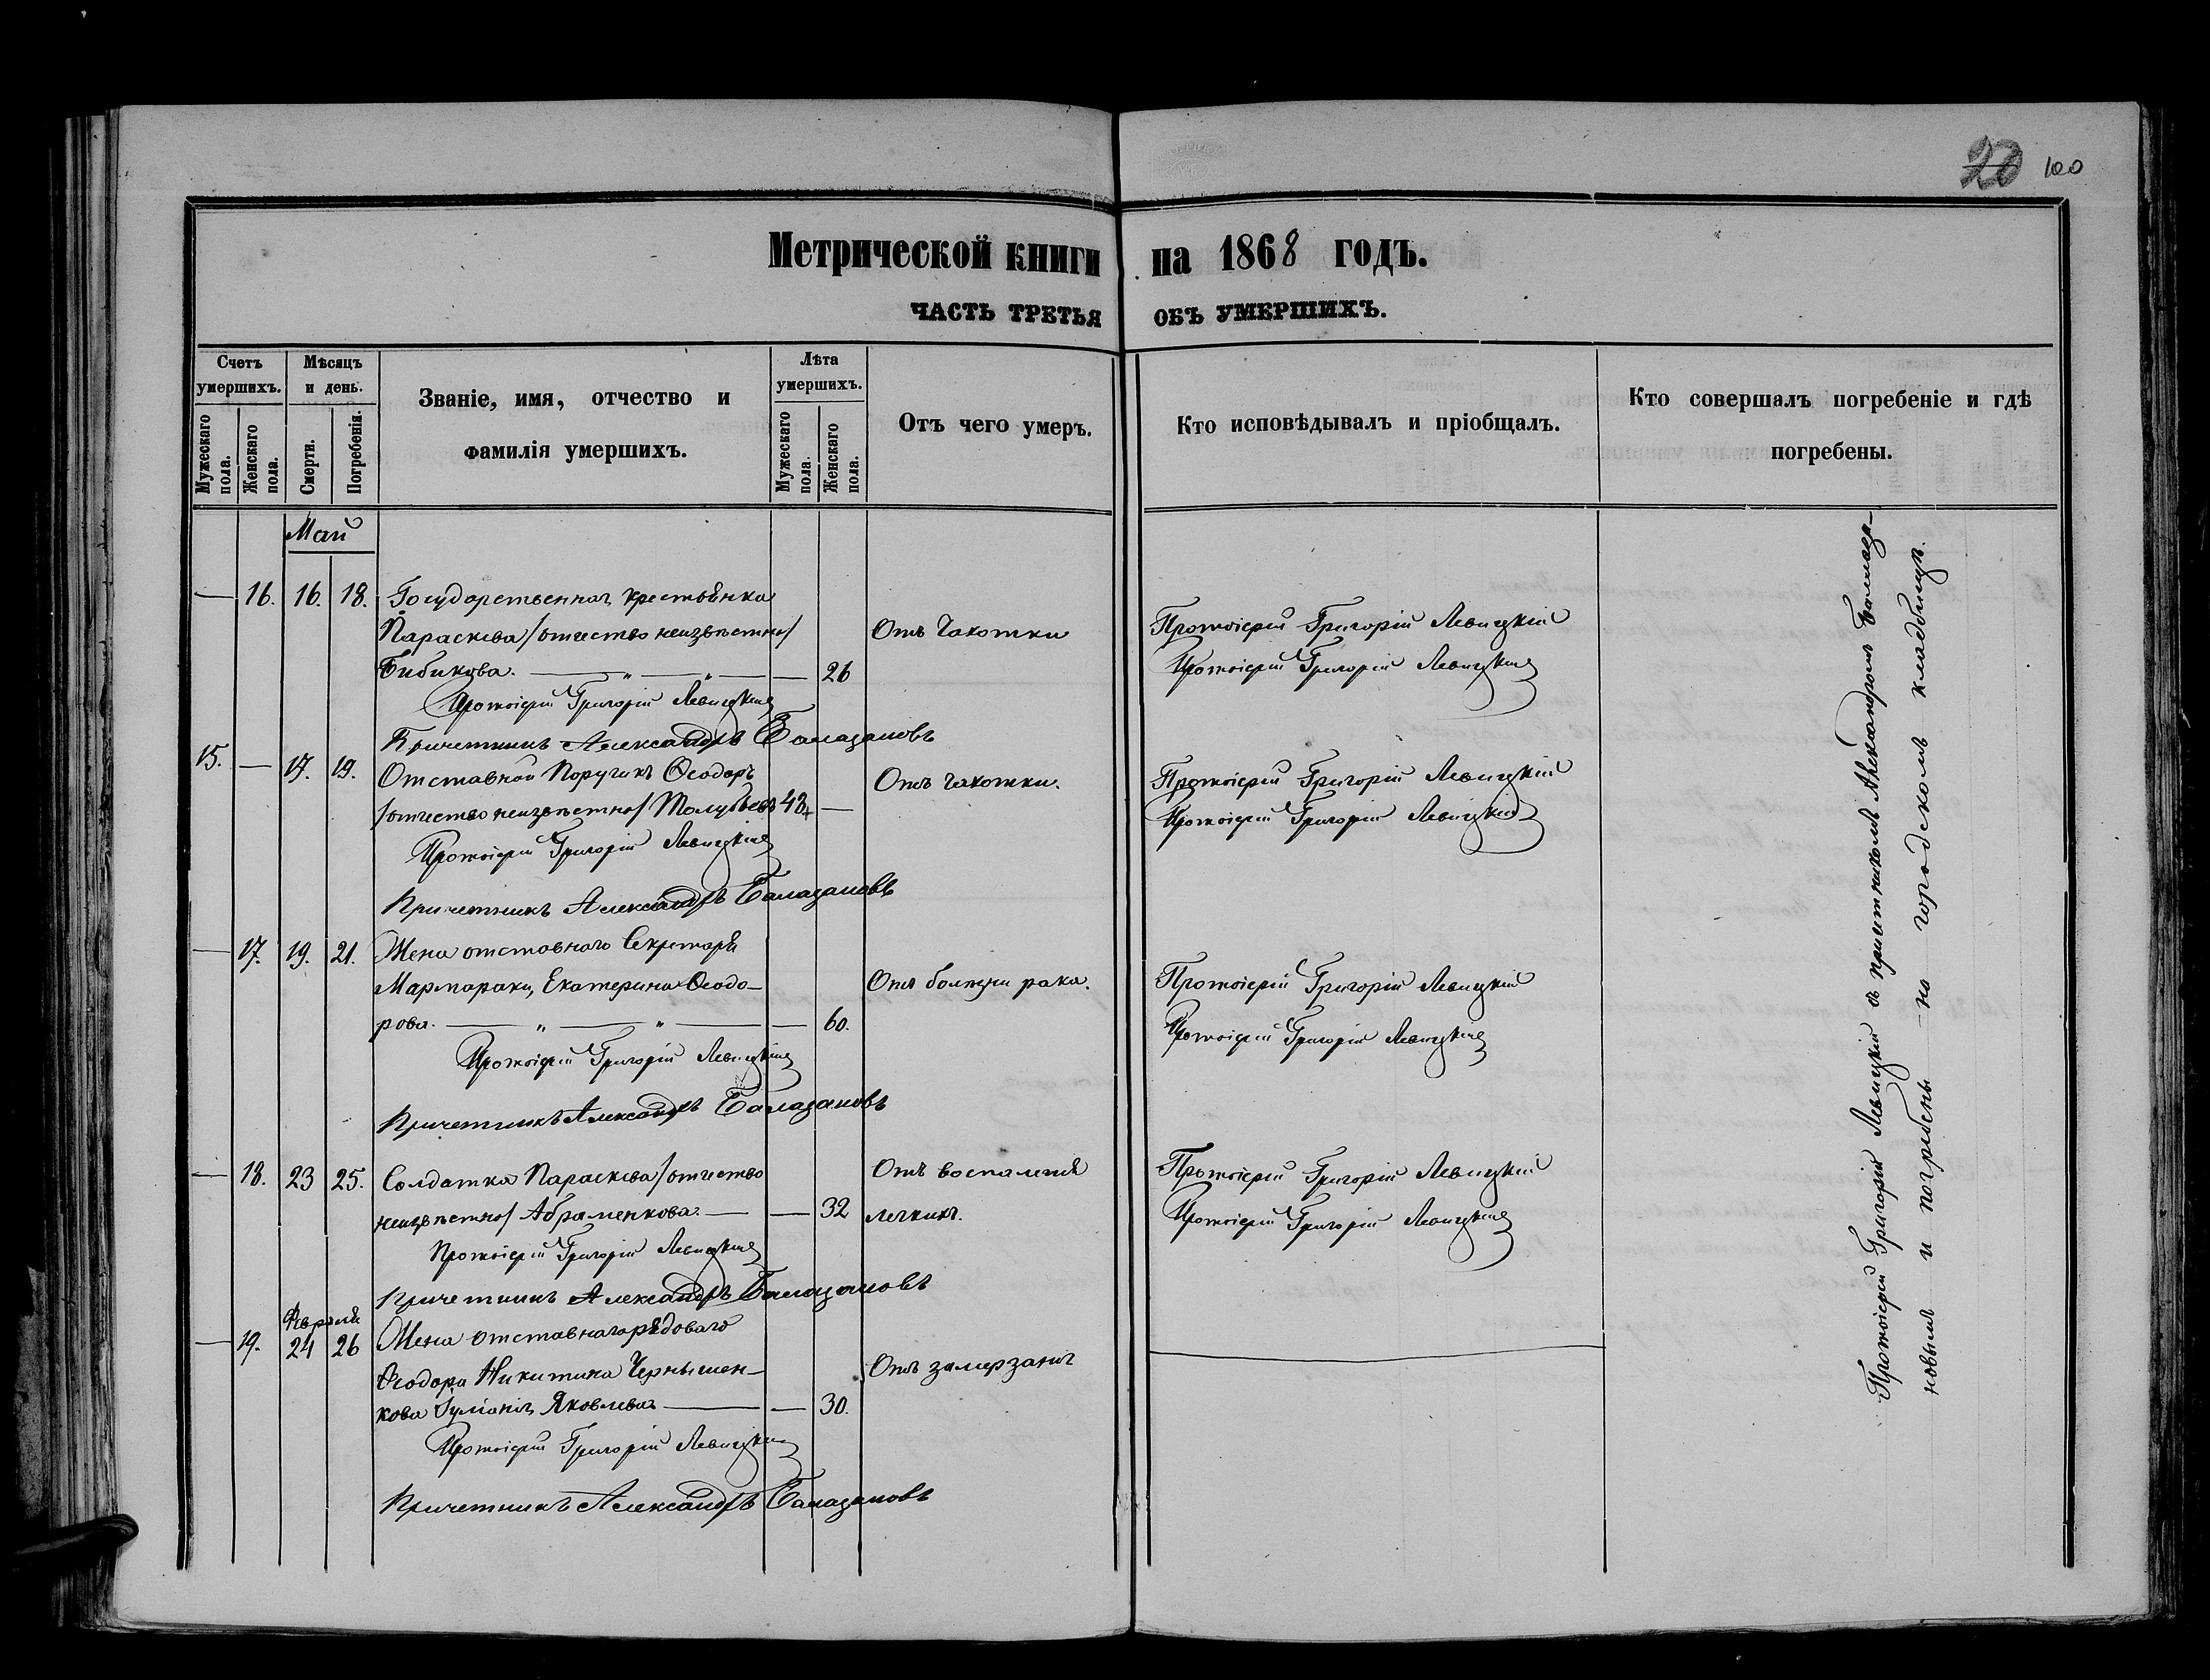 20 100
Метрической книги на 1868 годъ.
ЧАСТЬ ТРЕТЬЯ ОБЪ УМЕРШИХЪ.
Счетъ умершихъ.
Мужескаго пола.
Женскаго пола.
Мѣсяцъ и день.
Смерти.
Погребенія.
Званіе, имя, отчество и
фамилія умершихъ.
Лѣта умершихъ.
Мужескаго пола.
Женскаго пола.
Отъ чего умеръ.
Кто исповѣдывалъ и пріобщалъ.
Кто совершалъ погребеніе и гдѣ
погребены.
Май
— 16. 16. 18. Государственная крестьянка
Параскева /отчество неизвѣстно/ Отъ Чахотки Протоіерей Григорій Левицкій
Бибикова. — „ — „ — — 26 Протоіерей Григорій Левицкій
Протоіерей Григорій Левицкій
Причетникъ Александръ Балабановъ
15. — 17. 19. Отставной Поручикъ Ѳеодоръ Отъ чахотки. Протоіерей Григорій Левицкій
/отчество неизвѣстно/ 48 — Протоіерей Григорій Левицкій
Протоіерей Григорій Левицкій
Причетникъ Александръ Балабановъ
— 17. 19. 21. Жена отставнаго Секретаря
Мармараки, Екатерина Ѳеодо- Отъ болѣзни рака. Протоіерей Григорій Левицкій
рова. — „ — „ — — 60. Протоіерей Григорій Левицкій
Протоіерей Григорій Левицкій
Причетникъ Александръ Балабановъ
— 18. 23 25. Солдатка Параскева /отчество Отъ воспаленія Протоіерей Григорій Левицкій
неизвѣстно/ Абраменкова. — — 32 легкихъ. Протоіерей Григорій Левицкій
Протоіерей Григорій Левицкій
Причетникъ Александръ Балабановъ
Февраля
— 19. 24 26 Жена отставнаго рядоваго
Ѳеодора Никитина Чернышен- Отъ замерзанія
кова Іуліанія Яковлева — — 30.
Протоіерей Григорій Левицкій
Причетникъ Александръ Балабановъ
Протоіерей Григорій Левицкій съ причетникомъ Александромъ Балаба-
новымъ и погребены на городскомъ кладбищѣ.